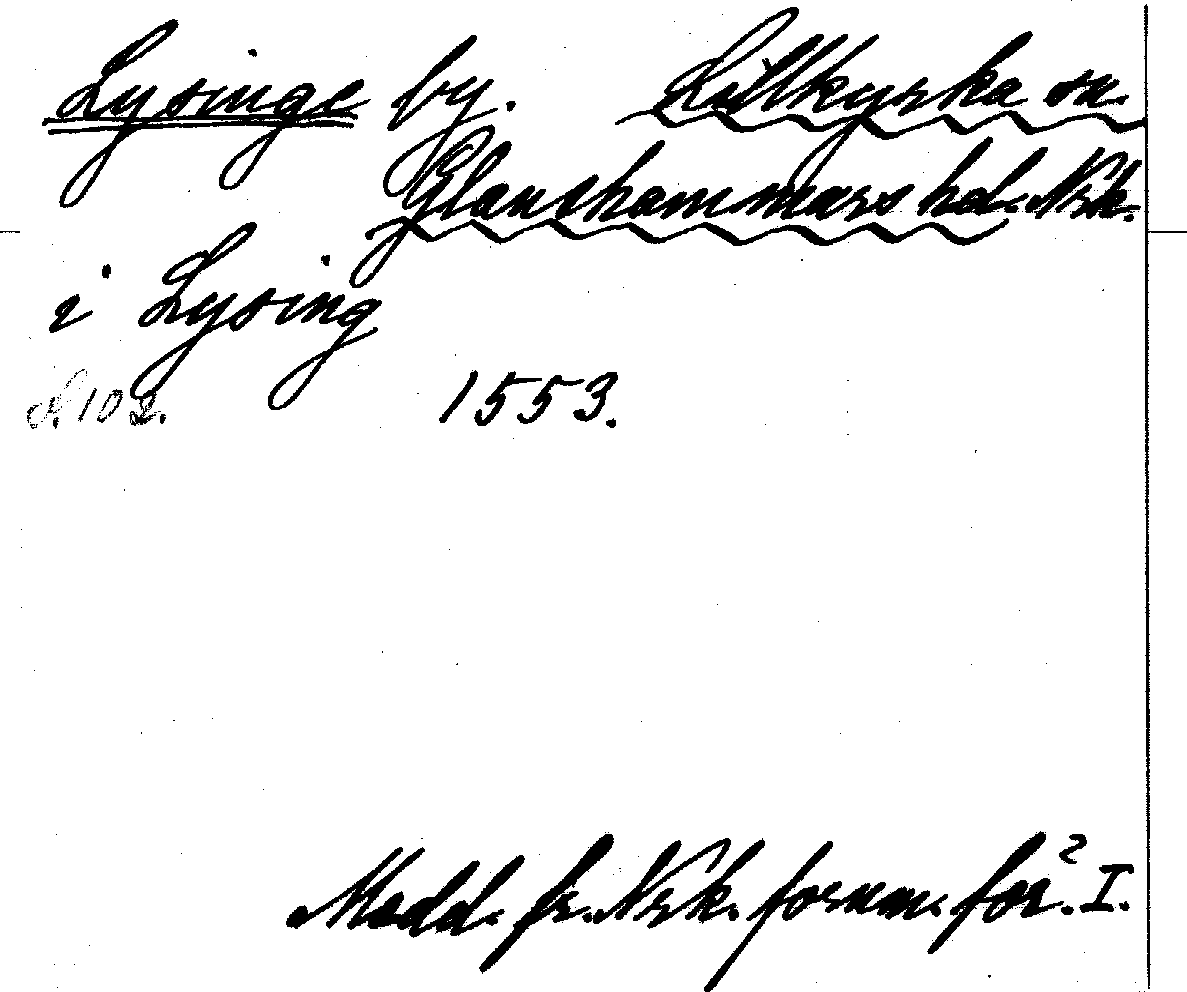 Lysinge by. Lillkyrka sn.
Glanshammars hd. Nrk.
i Lysing
s. 102. 1553.
Medd. fr. Nrk. fornm. för. I.